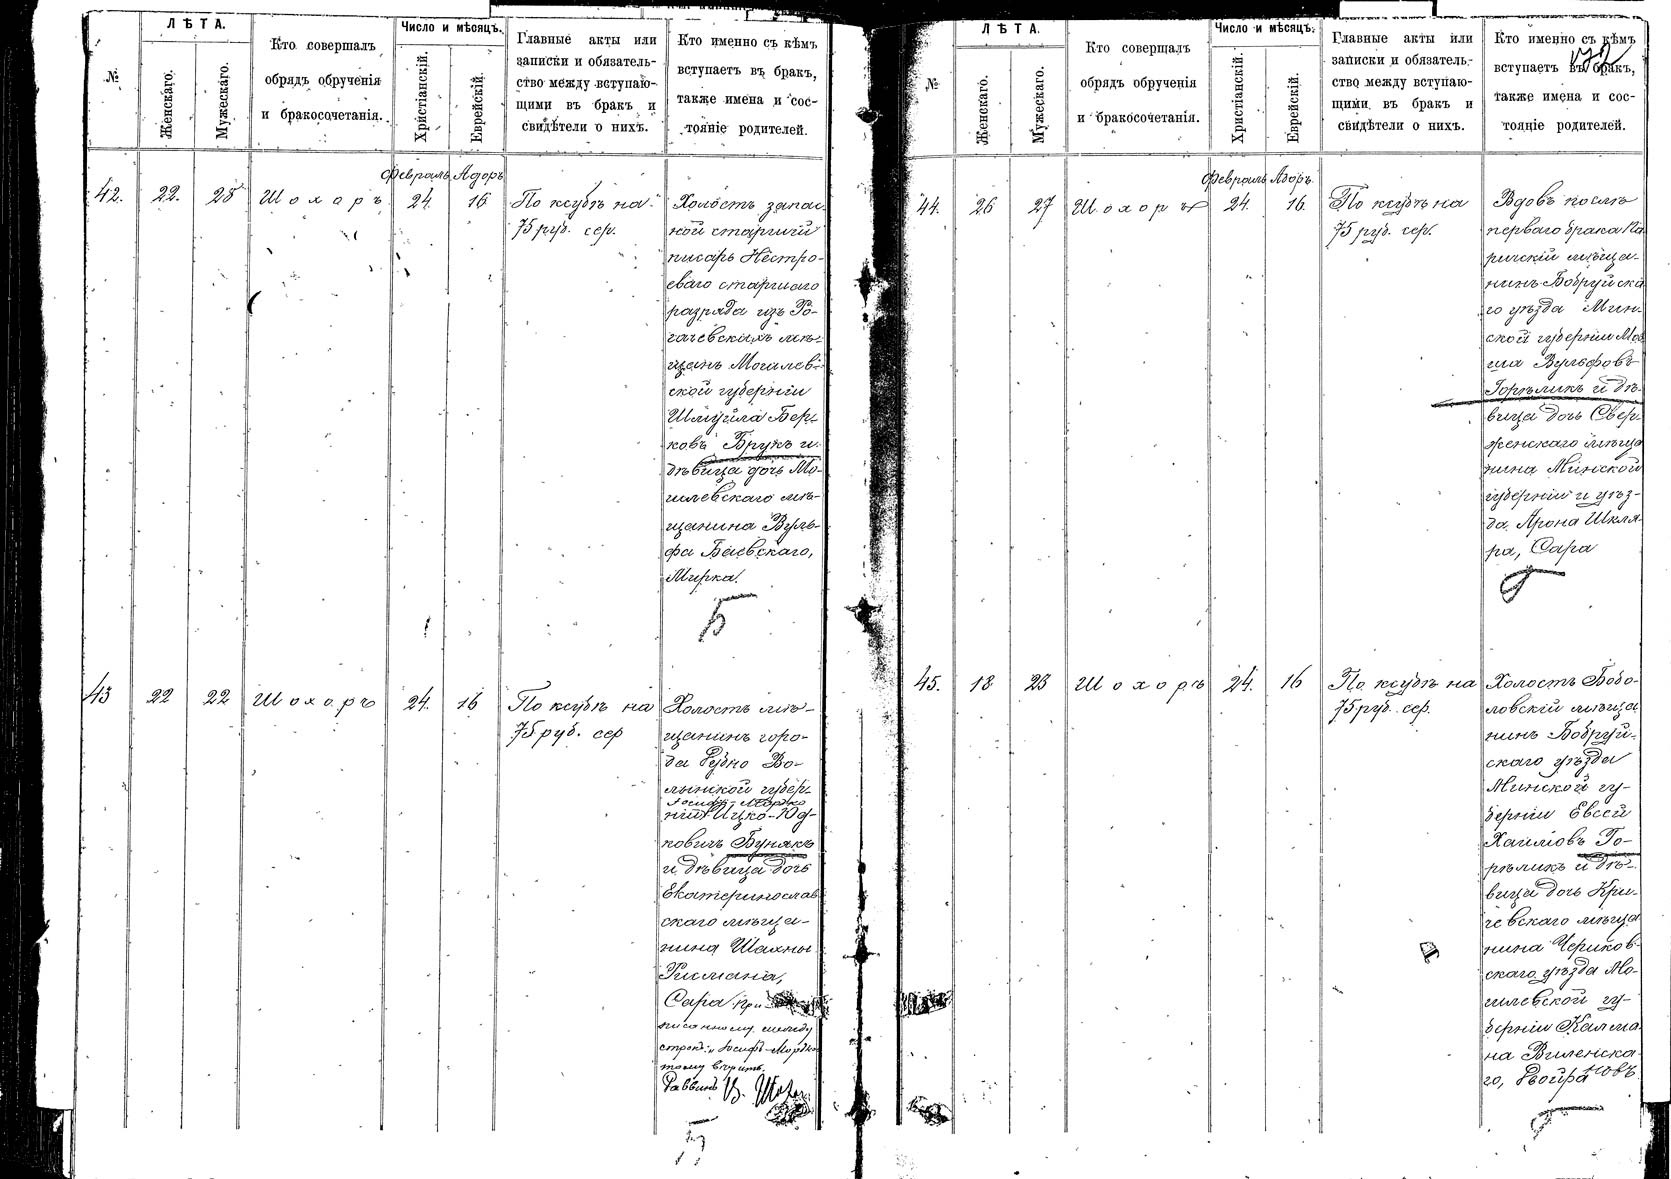 №
ЛѢТА.
Женскаго.
Мужескаго.
Кто совершалъ
обрядъ обрученія
и бракосочетанія.
Число и мѣсяцъ.
Христіанскій.
Еврейскій.
Главные акты или
записки и обязатель-
ство между вступаю-
щими въ бракъ и
свидѣтели о нихъ.
Кто именно съ кѣмъ
вступаетъ въ бракъ,
также имена и сос-
тояніе родителей.
42. 22. 28 Шохоръ
Февраль Адоръ
24. 16
По ксубѣ на
75 руб. сер.
Холостъ запас-
ной старшій
писарь Нестро-
еваго старшаго
разряда изъ Ро-
гачевскихъ мѣ-
щанъ Могилев-
ской губерніи
Шмуйла Бер-
ковъ Брукъ и
дѣвица дочь Мо-
гилевскаго мѣ-
щанина Вуль-
фа Баевскаго,
Мирка.
Б
43 22 22 Шохоръ 24. 16
По ксубѣ на
75 руб. сер
Холостъ мѣ-
щанинъ горо-
да Дубно Во-
лынской губер-
Іосифъ-Мордко
ніи Ицко-Юд-
ковичъ Бунякъ
и дѣвица дочь
Екатеринослав
скаго мѣща-
нина Шахны
Рисмана,
Сара При-
писанному между
строкъ: „Іосифъ-Мордко
тому вѣрить.
Раввинъ
Б
№
ЛѢТА.
Женскаго.
Мужескаго.
Кто совершалъ
обрядъ обрученія
и бракосочетанія.
Число и мѣсяцъ.
Христіанскій.
Еврейскій.
Главные акты или
записки и обязатель-
ство между вступаю-
щими въ бракъ и
свидѣтели о нихъ.
Кто именно съ кѣмъ
вступаетъ въ бракъ,
также имена и сос-
тояніе родителей.
172
44. 26 27 Шохоръ
Февраль Адоръ.
24. 16.
По ксубѣ на
75 руб. сер.
Вдовъ послѣ
перваго брака Па
ричскій мѣща-
нинъ Бобруйска
го уѣзда Мин-
ской губерніи Мов
ша Вульфовъ
Горѣликъ и дѣ-
вица дочь Свер-
женскаго мѣща
нина Минской
губерніи и уѣз-
да Арона Шкля-
ра, Сара
Г
45. 18 23 Шохоръ 24. 16
По ксубѣ на
75 руб. сер.
Холостъ Бобо-
ловскій мѣща
нинъ Бобруй-
скаго уѣзда
Минской гу-
берніи Евсей
Хаимовъ Го-
рѣликъ и дѣ-
вица дочь Кри-
чевскаго мѣща
нина Чериков-
скаго уѣзда Мо-
гилевской гу-
берніи Калма
на Виленска-
го, Двойра
Г